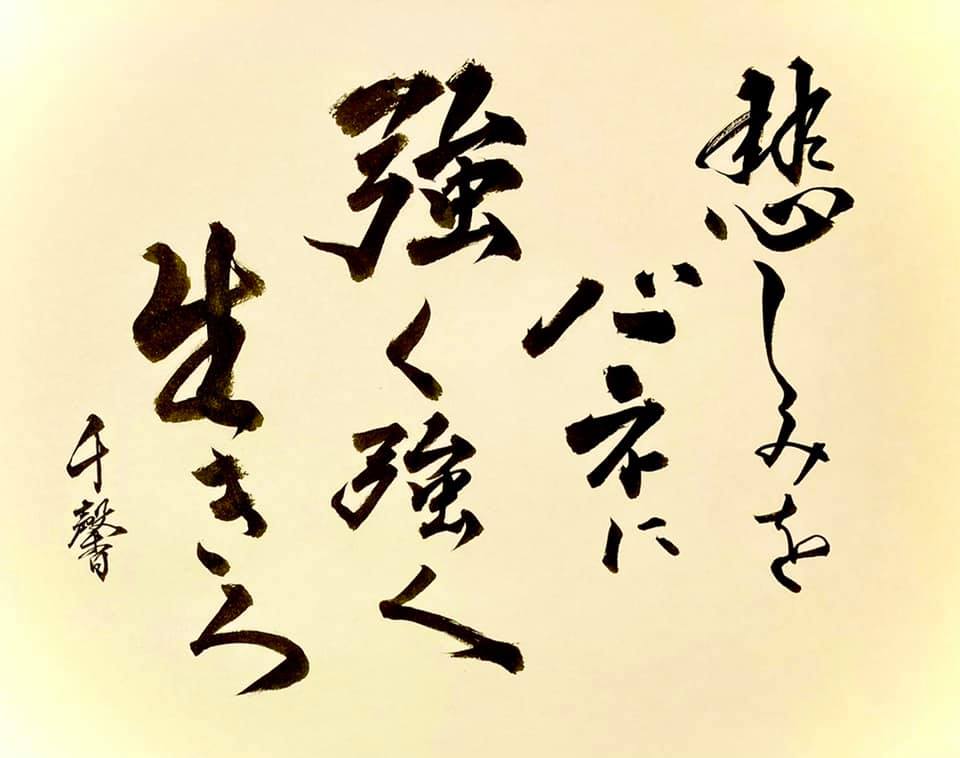 悲しみを
バネに
強く強く
生きろ
千馨